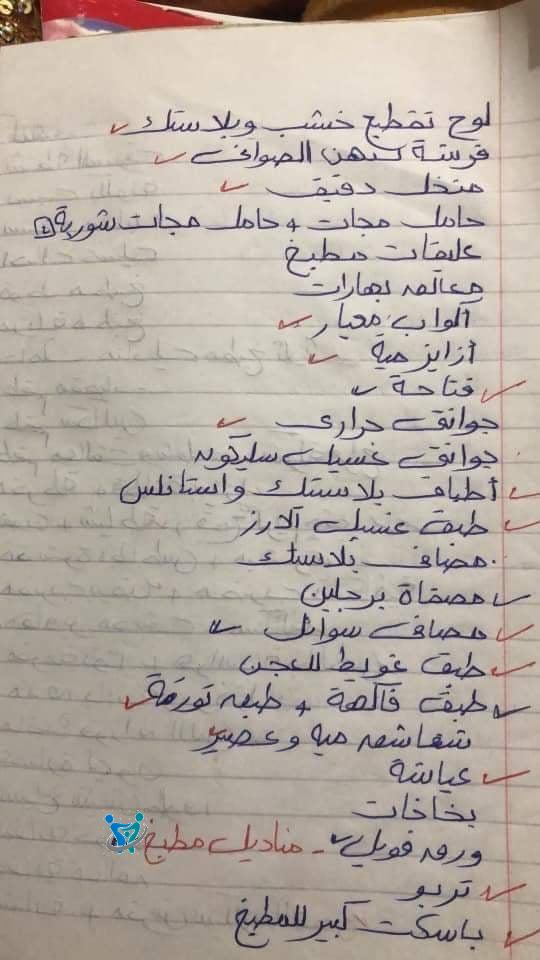 لوح تقطيع خشب وبلاستك
فرشة لدهن الصوانى
منخل دقيق
حامل مجات + حامل مجات شوربة
عليقات مطبخ
معالق بهارات
أكواب معيار
أزايز مية
فتاحة
جوانتى حرارى
جوانتى غسيل سليكون
أطباق بلاستك واستانلس
طبق غسيل الارز
مصافى بلاستك
مصفاة برجلين
مصافى سوائل
طبق غويط للعجن
طبق فاكهة + طبق تورتة
شفاشق مية وعصير
عياشة
بخاخات
ورق فويل - مناديل مطبخ
تربو
باسكت كبير للمطبخ